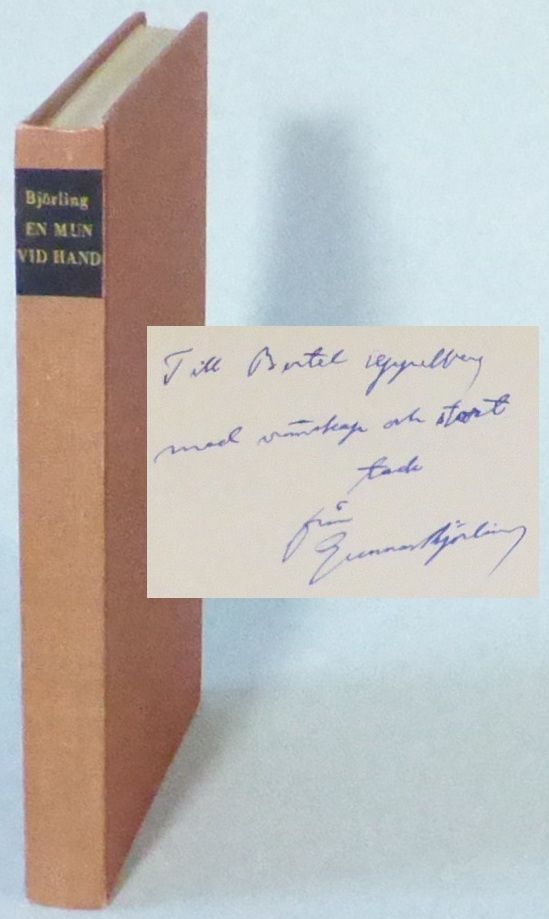 Björling
EN MUN
VID HAND
Till Bertel Appelberg
med vänskap och stort
tack
från
Gunnar Björling